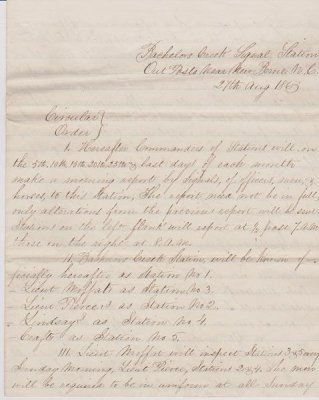 Bachelors Creek Signal Station
Out Posts Near New Berne N.C.
27th Aug 1863
Circular
Order
I. Hereafter Commanders of Stations will on
the 5th, 10th, 15th, 20th, 25th & last days of each month
make a morning report by signals, of officers, men, &
horses, to this Station, The report need not be in full,
only alterations from the previous report will be sent.
Stations on the left flank will report at ½ past 7 A.M.
those on the right at 8. A.M.
II. Bachelors Creek Station, will be known of-
ficially hereafter as Station No 1.
Lieut Moffats as Station No 3.
Lieut Pierces as Station No 2.
Lindsays as Station No 4.
Crofts as Station No 5.
III. Lieut Moffat will inspect Stations 3 & 5 every
Sunday Morning, Lieut Pierce, Stations 2 & 4. The men
will be required to be in uniform at all Sunday